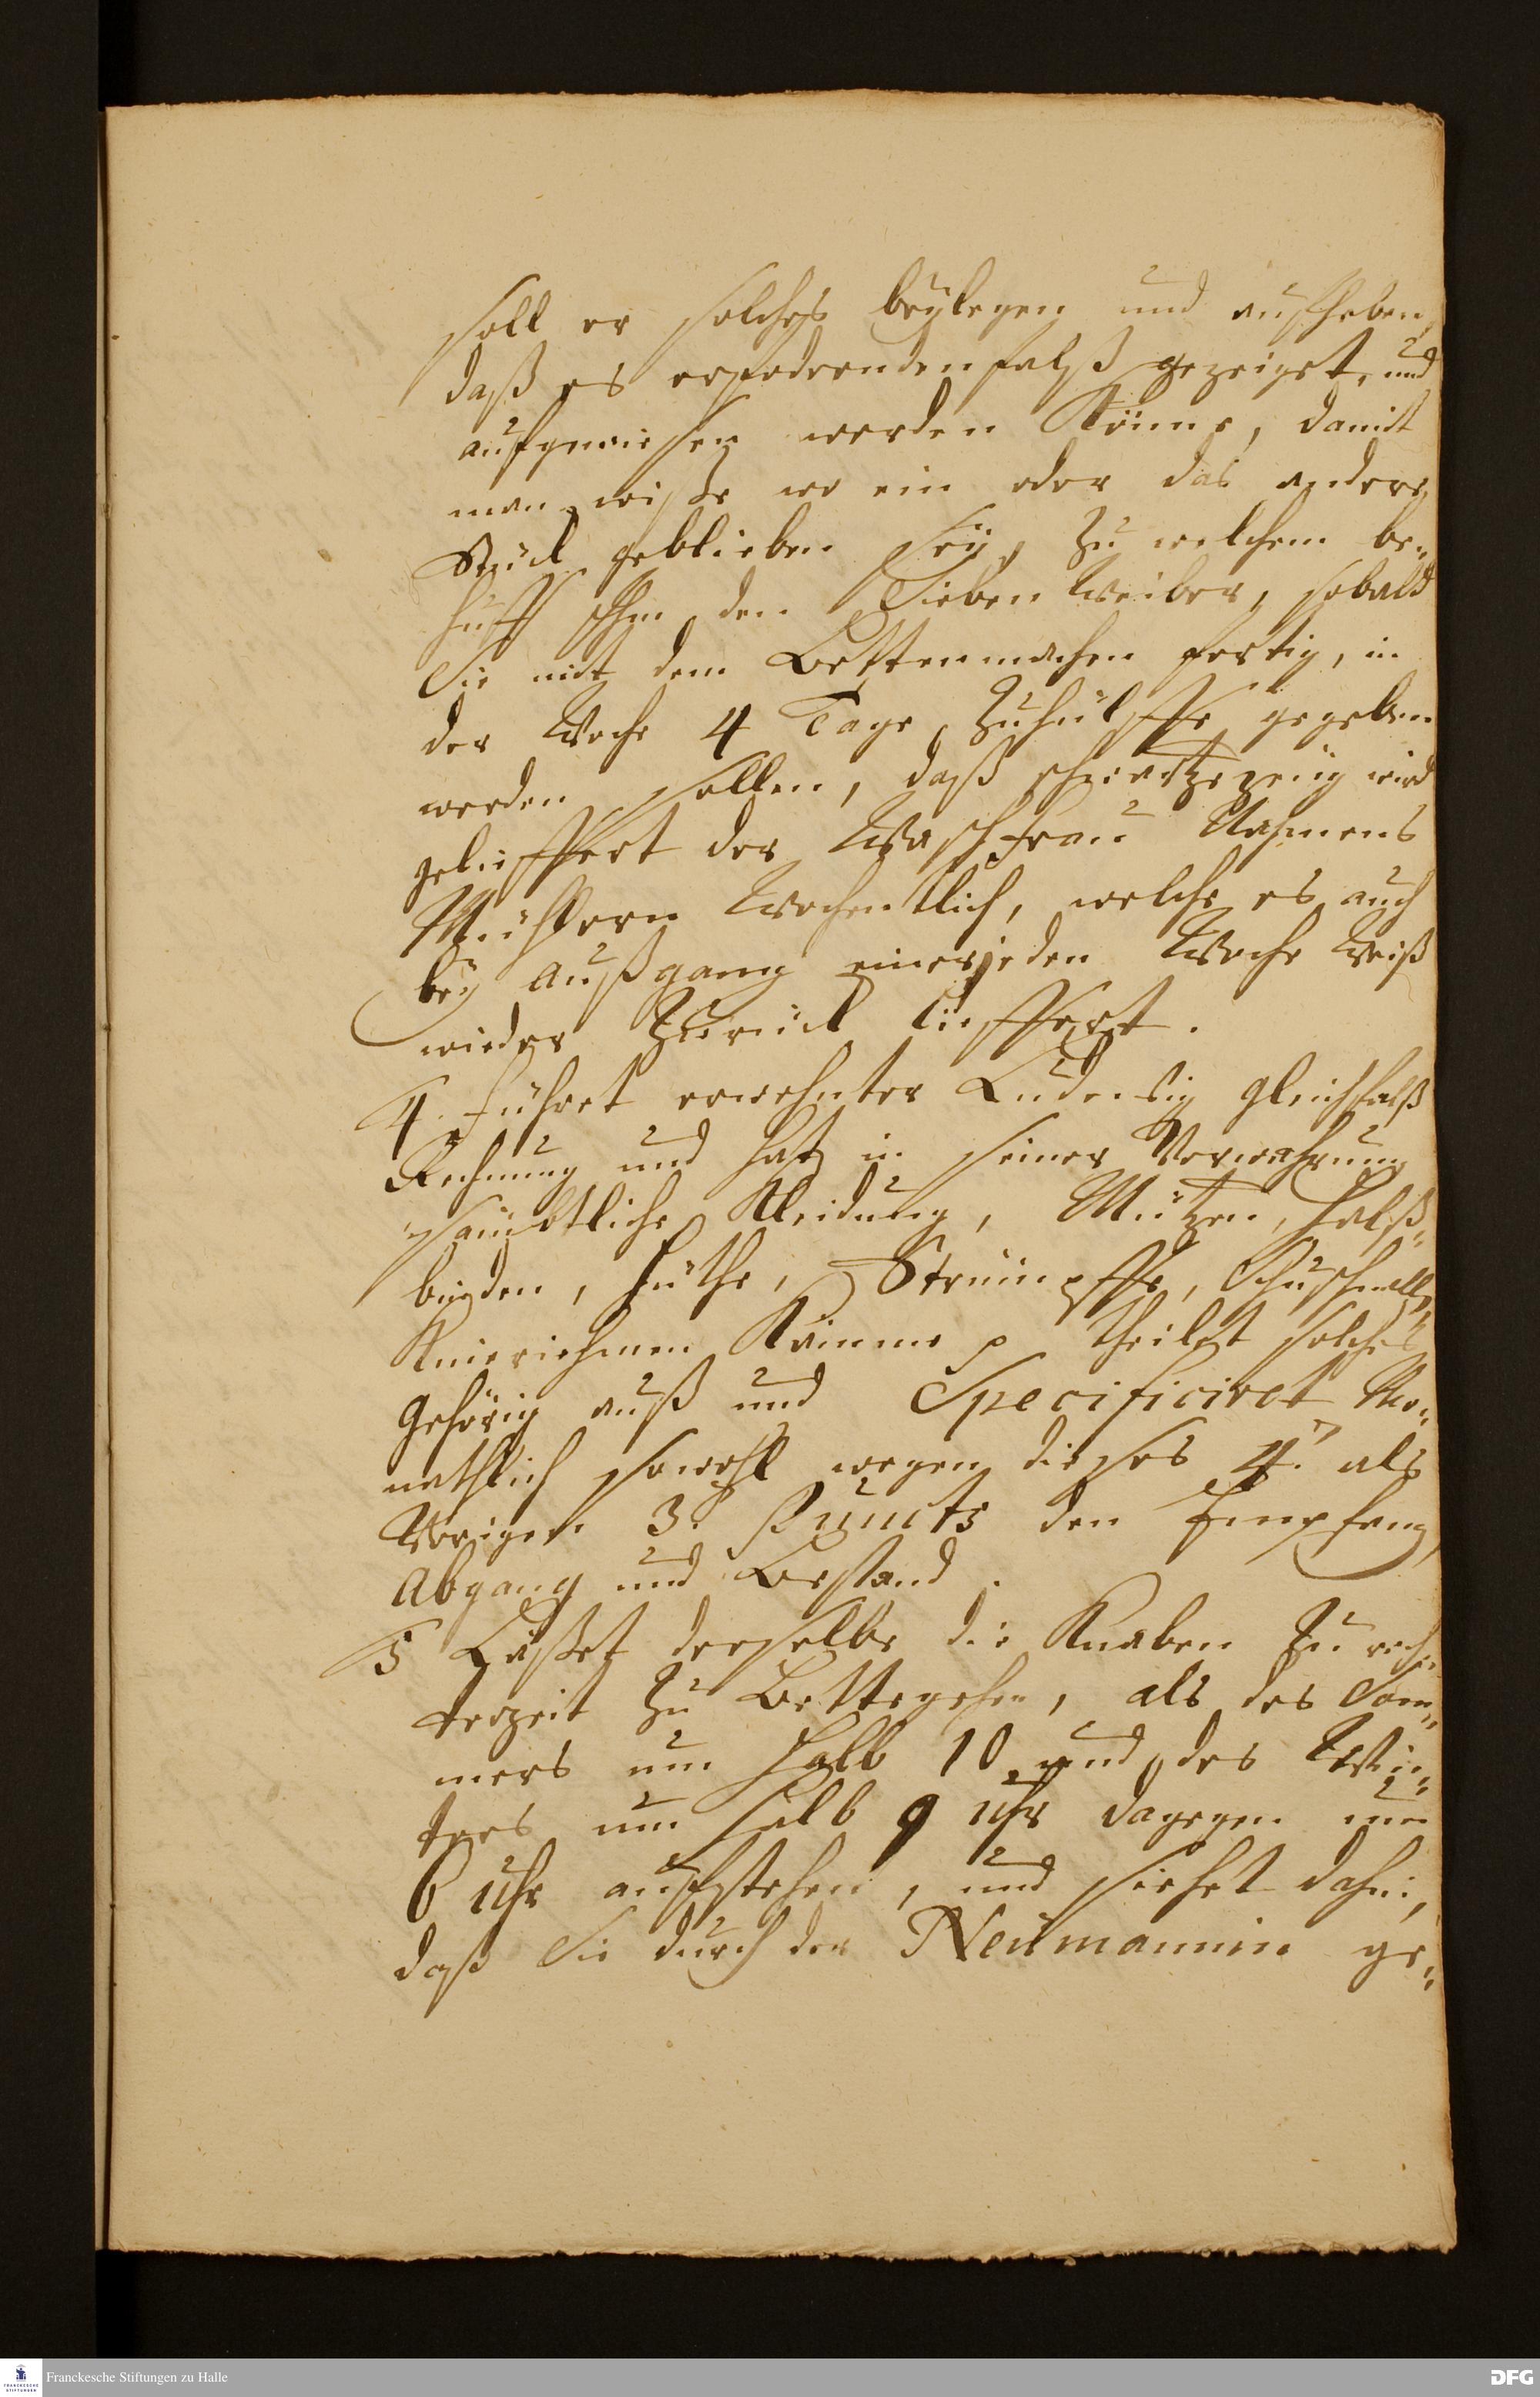 soll er solches beÿlegen und aufheben,
daß es erfodrendenfalß gezeiget, und
aufgewiesen werden könne, damit
man wiße wo ein oder das andere
Stück geblieben seÿ, zu welchem be„
huff Ihm den Sieben Weiber, sobald
Sie mit dem Bettenmachen fertig, in
der Woche 4 Tage, zuhülffe gegeben
werden sollen, daß schwartzezeug wird
gelieffert der Waschfrau Nahmens
Wochentlich, welche es auch
beÿ außgang einerjeden Woche Weiß
wieder zurück lieffert.
4. führet erwehnter gleichfalß
Rechnung und hat in seiner Verwahrung
sämbtliche Kleidung, Mützen, halß„
binden, hüthe, Strümpffe, Schuschnalle,
Knieriehmen Kämme p theilet solches
gehörig auß und Specificiret Mo„
nathlich sowohl wegen dieses 4. als
Vorigen 3. Puncts den Empfang,
Abgang und Bestand.
5 Läßet derselbe die Knaben zu rech„
terzeit zu Bettegehen, als des Som„
mers um halb 10 und des Win„
ters um halb 9 uhr dagegen um
6 uhr aufstehen, und siehet dahin,
daß Sie durch der Neumannin ge„
Franckesche Stiftungen zu Halle
DFG